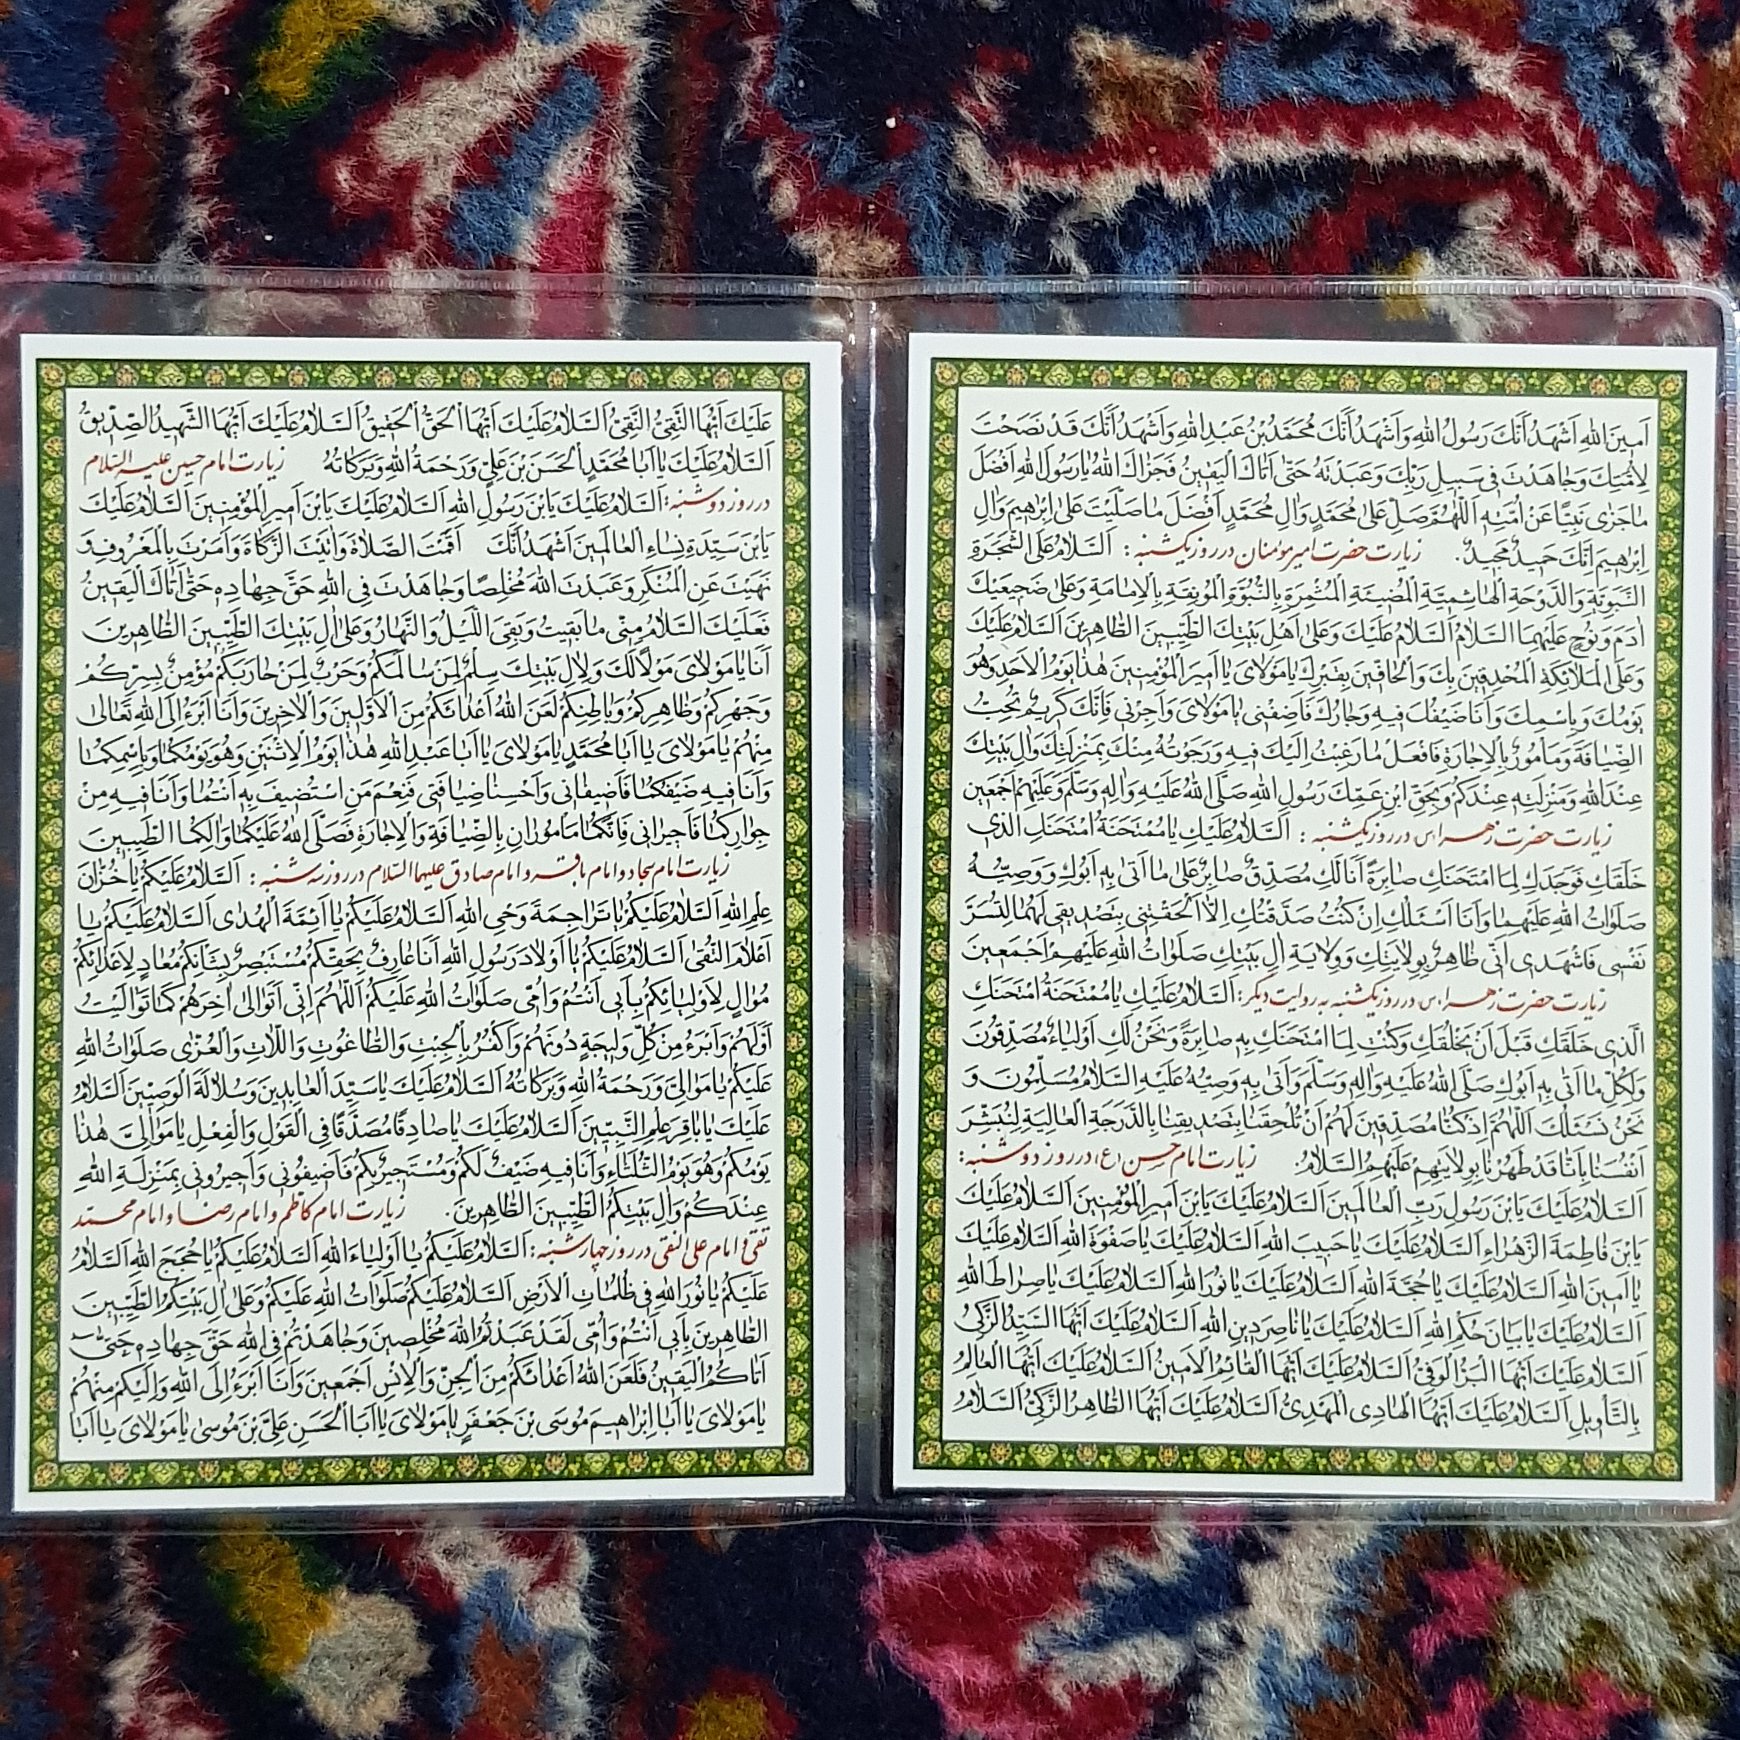 اَمينَ اللهِ اَشْهَدُ اَنَّكَ رَسُولُ اللهِ وَاَشْهَدُ اَنَّكَ مُحَمَّدُ بْنُ عَبْدِ اللهِ وَاَشْهَدُ اَنَّكَ قَدْ نَصَحْتَ
لِاُمَّتِكَ وَجاهَدْتَ فى سَبيلِ رَبِّكَ وَعَبَدْتَهُ حَتّىٰ اَتاكَ الْيَقينُ فَجَزاكَ اللهُ يا رَسُولَ اللهِ اَفْضَلَ
ما جَزىٰ نَبِيًّا عَنْ اُمَّتِهِ اَللّٰهُمَّ صَلِّ عَلىٰ مُحَمَّدٍ وَالِ مُحَمَّدٍ اَفْضَلَ ما صَلَّيْتَ عَلىٰ اِبْرٰهيمَ وَالِ
اِبْرٰهيمَ اِنَّكَ حَميدٌ مَجيدٌ. زیارت حضرت امیرمؤمنان در روز یکشنبه : اَلسَّلامُ عَلَى الشَّجَرَةِ
النَّبَوِيَّةِ وَالدَّوْحَةِ الْهاشِمِيَّةِ الْمُضيئَةِ الْمُثْمِرَةِ بِالنُّبُوَّةِ الْمُونِقَةِ بِالْاِمامَةِ وَعَلىٰ ضَجيعَيْكَ
ادَمَ وَنُوحٍ عَلَيْهِمَا السَّلامُ اَلسَّلامُ عَلَيْكَ وَعَلىٰ اَهْلِ بَيْتِكَ الطَّيِّبينَ الطّاهِرينَ اَلسَّلامُ عَلَيْكَ
وَعَلَى الْمَلائِكَةِ الْمُحْدِقينَ بِكَ وَالْحافّينَ بِقَبْرِكَ يا مَوْلاىَ يا اَميرَ الْمُؤْمِنينَ هٰذا يَوْمُ الْاَحَدِ وَهُوَ
يَوْمُكَ وَبِاسْمِكَ وَاَنَا ضَيْفُكَ فيهِ وَجارُكَ فَاَضِفْنى يا مَوْلاىَ وَاَجِرْنى فَاِنَّكَ كَريمٌ تُحِبُّ
الضِّيافَةَ وَمَأْمُورٌ بِالْاِجارَةِ فَافْعَلْ ما رَغِبْتُ اِلَيْكَ فيهِ وَرَجَوْتُهُ مِنْكَ بِمَنْزِلَتِكَ وَالِ بَيْتِكَ
عِنْدَ اللهِ وَمَنْزِلَتِهِ عِنْدَكُمْ وَبِحَقِّ ابْنِ عَمِّكَ رَسُولِ اللهِ صَلَّى اللهُ عَلَيْهِ وَالِهِ وَسَلَّمَ وَعَلَيْهِمْ اَجْمَعينَ
زیارت حضرت زهرا(س) در روز یکشنبه : اَلسَّلامُ عَلَيْكِ يا مُمْتَحَنَةُ امْتَحَنَكِ الَّذى
خَلَقَكِ فَوَجَدَكِ لِمَا امْتَحَنَكِ صابِرَةً اَنَا لَكِ مُصَدِّقٌ صابِرٌ عَلىٰ ما اَتىٰ بِهِ اَبُوكِ وَوَصِيُّهُ
صَلَواتُ اللهِ عَلَيْهِما وَاَنَا اَسْئَلُكِ اِنْ كُنْتُ صَدَّقْتُكِ اِلّا اَلْحَقْتِنى بِتَصْديقى لَهُما لِتُسَرَّ
نَفْسى فَاشْهَدى اَنّى ظاهِرٌ بِوِلايَتِكِ وَوِلايَةِ الِ بَيْتِكِ صَلَواتُ اللهِ عَلَيْهِمْ اَجْمَعينَ
زیارت حضرت زهرا(س) در روز یکشنبه به روایت دیگر: اَلسَّلامُ عَلَيْكِ يا مُمْتَحَنَةُ امْتَحَنَكِ
الَّذى خَلَقَكِ قَبْلَ اَنْ يَخْلُقَكِ وَكُنْتِ لِمَا امْتَحَنَكِ بِهِ صابِرَةً وَنَحْنُ لَكِ اَوْلِياءُ مُصَدِّقُونَ
وَلِكُلِّ ما اَتىٰ بِهِ اَبُوكِ صَلَّى اللهُ عَلَيْهِ وَالِهِ وَسَلَّمَ وَاَتىٰ بِهِ وَصِيُّهُ عَلَيْهِ السَّلامُ مُسَلِّمُونَ وَ
نَحْنُ نَسْئَلُكَ اَللّٰهُمَّ اِذْ كُنّا مُصَدِّقينَ لَهُمْ اَنْ تُلْحِقَنا بِتَصْديقِنا بِالدَّرَجَةِ الْعالِيَةِ لِنُبَشِّرَ
اَنْفُسَنا بِاَنّا قَدْ طَهُرْنا بِوِلايَتِهِمْ عَلَيْهِمُ السَّلامُ. زیارت امام حسن (ع) در روز دوشنبه:
اَلسَّلامُ عَلَيْكَ يَا بْنَ رَسُولِ رَبِّ الْعالَمينَ اَلسَّلامُ عَلَيْكَ يَا بْنَ اَميرِ الْمُؤْمِنينَ اَلسَّلامُ عَلَيْكَ
يَا بْنَ فاطِمَةَ الزَّهْراءِ اَلسَّلامُ عَلَيْكَ يا حَبيبَ اللهِ اَلسَّلامُ عَلَيْكَ يا صَفْوَةَ اللهِ اَلسَّلامُ عَلَيْكَ
يا اَمينَ اللهِ اَلسَّلامُ عَلَيْكَ يا حُجَّةَ اللهِ اَلسَّلامُ عَلَيْكَ يا نُورَ اللهِ اَلسَّلامُ عَلَيْكَ يا صِراطَ اللهِ
اَلسَّلامُ عَلَيْكَ يا بَيانَ حُكْمِ اللهِ اَلسَّلامُ عَلَيْكَ يا ناصِرَ دينِ اللهِ اَلسَّلامُ عَلَيْكَ اَيُّهَا السَّيِّدُ الزَّكِىُّ
اَلسَّلامُ عَلَيْكَ اَيُّهَا الْبَرُّ الْوَفِىُّ اَلسَّلامُ عَلَيْكَ اَيُّهَا الْقائِمُ الْاَمينُ اَلسَّلامُ عَلَيْكَ اَيُّهَا الْعالِمُ
بِالتَّأْويلِ اَلسَّلامُ عَلَيْكَ اَيُّهَا الْهادِى الْمَهْدِىُّ اَلسَّلامُ عَلَيْكَ اَيُّهَا الطّاهِرُ الزَّكِىُّ اَلسَّلامُ
عَلَيْكَ اَيُّهَا التَّقِىُّ النَّقِىُّ اَلسَّلامُ عَلَيْكَ اَيُّهَا الْحَقُّ الْحَقيقُ اَلسَّلامُ عَلَيْكَ اَيُّهَا الشَّهيدُ الصِّدّيقُ
اَلسَّلامُ عَلَيْكَ يا اَبا مُحَمَّدٍ الْحَسَنَ بْنَ عَلِىٍّ وَرَحْمَةُ اللهِ وَبَرَكاتُهُ زیارت امام حسین علیه السّلام
در روز دوشنبه: اَلسَّلامُ عَلَيْكَ يَا بْنَ رَسُولِ اللهِ اَلسَّلامُ عَلَيْكَ يَا بْنَ اَميرِ الْمُؤْمِنينَ اَلسَّلامُ عَلَيْكَ
يَا بْنَ سَيِّدَةِ نِساءِ الْعالَمينَ اَشْهَدُ اَنَّكَ اَقَمْتَ الصَّلاةَ وَاتَيْتَ الزَّكاةَ وَاَمَرْتَ بِالْمَعْرُوفِ وَ
نَهَيْتَ عَنِ الْمُنْكَرِ وَعَبَدْتَ اللهَ مُخْلِصًا وَجاهَدْتَ فِى اللهِ حَقَّ جِهادِهِ حَتّىٰ اَتاكَ الْيَقينُ
فَعَلَيْكَ السَّلامُ مِنّى ما بَقيتُ وَبَقِىَ اللَّيْلُ وَالنَّهارُ وَعَلىٰ الِ بَيْتِكَ الطَّيِّبينَ الطّاهِرينَ
اَنَا يا مَوْلاىَ مَوْلًا لَكَ وَلِالِ بَيْتِكَ سِلْمٌ لِمَنْ سالَمَكُمْ وَحَرْبٌ لِمَنْ حارَبَكُمْ مُؤْمِنٌ بِسِرِّكُمْ
وَجَهْرِكُمْ وَظاهِرِكُمْ وَباطِنِكُمْ لَعَنَ اللهُ اَعْدائَكُمْ مِنَ الْاَوَّلينَ وَالْاخِرينَ وَاَنَا اَبْرَءُ اِلَى اللهِ تَعالىٰ
مِنْهُمْ يا مَوْلاىَ يا اَبا مُحَمَّدٍ يا مَوْلاىَ يا اَبا عَبْدِ اللهِ هٰذا يَوْمُ الْاِثْنَيْنِ وَهُوَ يَوْمُكُما وَبِاسْمِكُما
وَاَنَا فيهِ ضَيْفُكُما فَاَضيفانى وَاَحْسِنا ضِيافَتى فَنِعْمَ مَنِ اسْتُضيفَ بِهِ اَنْتُما وَاَنَا فيهِ مِنْ
جِوارِكُما فَاَجيرانى فَاِنَّكُما مَأْمُورانِ بِالضِّيافَةِ وَالْاِجارَةِ فَصَلَّى اللهُ عَلَيْكُما وَالِكُمَا الطَّيِّبينَ
زیارت امام سجاد و امام باقر و امام صادق علیهما السّلام در روز سه شنبه : اَلسَّلامُ عَلَيْكُمْ يا خُزّانَ
عِلْمِ اللهِ اَلسَّلامُ عَلَيْكُمْ يا تَراجِمَةَ وَحْىِ اللهِ اَلسَّلامُ عَلَيْكُمْ يا اَئِمَّةَ الْهُدىٰ اَلسَّلامُ عَلَيْكُمْ يا
اَعْلامَ التُّقىٰ اَلسَّلامُ عَلَيْكُمْ يا اَوْلادَ رَسُولِ اللهِ اَنَا عارِفٌ بِحَقِّكُمْ مُسْتَبْصِرٌ بِشَأْنِكُمْ مُعادٍ لِاَعْدائِكُمْ
مُوالٍ لِاَوْلِيائِكُمْ بِاَبى اَنْتُمْ وَاُمّى صَلَواتُ اللهِ عَلَيْكُمْ اَللّٰهُمَّ اِنّى اَتَوالىٰ اخِرَهُمْ كَما تَوالَيْتُ
اَوَّلَهُمْ وَاَبْرَءُ مِنْ كُلِّ وَليجَةٍ دُونَهُمْ وَاَكْفُرُ بِالْجِبْتِ وَالطّاغُوتِ وَاللّاتِ وَالْعُزّىٰ صَلَواتُ اللهِ
عَلَيْكُمْ يا مَوالِىَّ وَرَحْمَةُ اللهِ وَبَرَكاتُهُ اَلسَّلامُ عَلَيْكَ يا سَيِّدَ الْعابِدينَ وَسُلالَةَ الْوَصِيّينَ اَلسَّلامُ
عَلَيْكَ يا باقِرَ عِلْمِ النَّبِيّينَ اَلسَّلامُ عَلَيْكَ يا صادِقًا مُصَدَّقًا فِى الْقَوْلِ وَالْفِعْلِ يا مَوالِىَّ هٰذا
يَوْمُكُمْ وَهُوَ يَوْمُ الثُّلَثاءِ وَاَنَا فيهِ ضَيْفٌ لَكُمْ وَمُسْتَجيرٌ بِكُمْ فَاَضيفُونى وَاَجيرُونى بِمَنْزِلَةِ اللهِ
عِنْدَكُمْ وَالِ بَيْتِكُمُ الطَّيِّبينَ الطّاهِرينَ. زیارت امام کاظم و امام رضا و امام محمّد
تقی و امام علی النقی در روز چهارشنبه : اَلسَّلامُ عَلَيْكُمْ يا اَوْلِياءَ اللهِ اَلسَّلامُ عَلَيْكُمْ يا حُجَجَ اللهِ اَلسَّلامُ
عَلَيْكُمْ يا نُورَ اللهِ فى ظُلُماتِ الْاَرْضِ اَلسَّلامُ عَلَيْكُمْ صَلَواتُ اللهِ عَلَيْكُمْ وَعَلىٰ الِ بَيْتِكُمُ الطَّيِّبينَ
الطّاهِرينَ بِاَبى اَنْتُمْ وَاُمّى لَقَدْ عَبَدْتُمُ اللهَ مُخْلِصينَ وَجاهَدْتُمْ فِى اللهِ حَقَّ جِهادِهِ حَتّىٰ
اَتاكُمُ الْيَقينُ فَلَعَنَ اللهُ اَعْدائَكُمْ مِنَ الْجِنِّ وَالْاِنْسِ اَجْمَعينَ وَاَنَا اَبْرَءُ اِلَى اللهِ وَاِلَيْكُمْ مِنْهُمْ
يا مَوْلاىَ يا اَبا اِبْراهيمَ مُوسَى بْنَ جَعْفَرٍ يا مَوْلاىَ يا اَبَا الْحَسَنِ عَلِىَّ بْنَ مُوسىٰ يا مَوْلاىَ يا اَبا